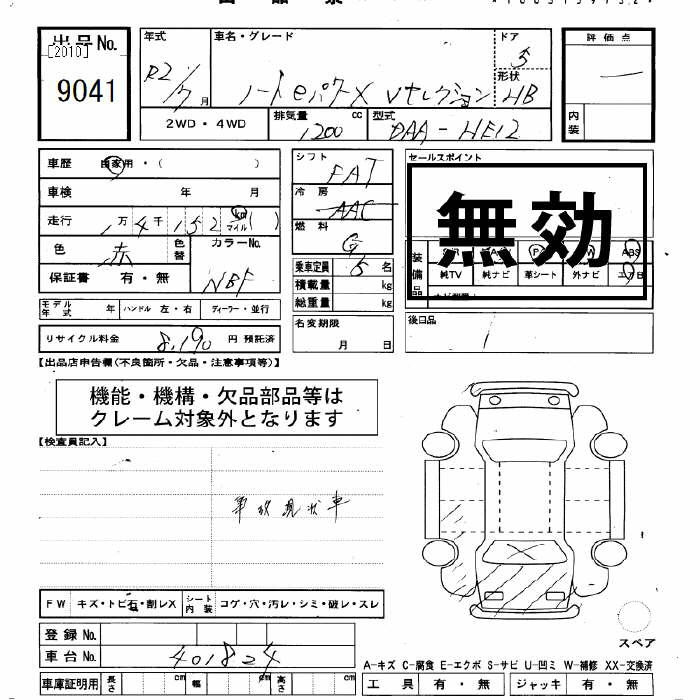 出品No.
[2010]
9041
年式
R2/7月
車名・グレード
ノートeパワーX Vセレクション
ドア
5
形状
HB
評価点
内装
2WD・4WD
排気量 1200 cc
型式 DAA-HE12
車歴 自家用・( )
車検 年 月
走行 1万4千152km(マイル)
色 赤
色替
カラーNo.
NBF
保証書 有・無
モデル年式 年 ハンドル 左・右 ディーラー・並行
リサイクル料金 8,190 円 預託済
シフト FAT
冷房 AAC
燃料 G
乗車定員 5名
積載量 kg
総重量 kg
名変期限
月 日
セールスポイント
無効
装備品
ABS
純TV 純ナビ 革シート 外ナビ エアB
後日品
【出品店申告欄(不良箇所・欠品・注意事項等)】
機能・機構・欠品部品等は
クレーム対象外となります
【検査員記入】
事故現状車
FW キズ・トビ石・割レX シート内装 コゲ・穴・汚レ・シミ・破レ・スレ
登録No.
車台No. 401824
車庫証明用 長さ cm 幅 cm 高さ cm
スペア
A-キズ C-腐食 E-エクボ S-サビ U-凹ミ W-補修 XX-交換済
工具 有・無 ジャッキ 有・無